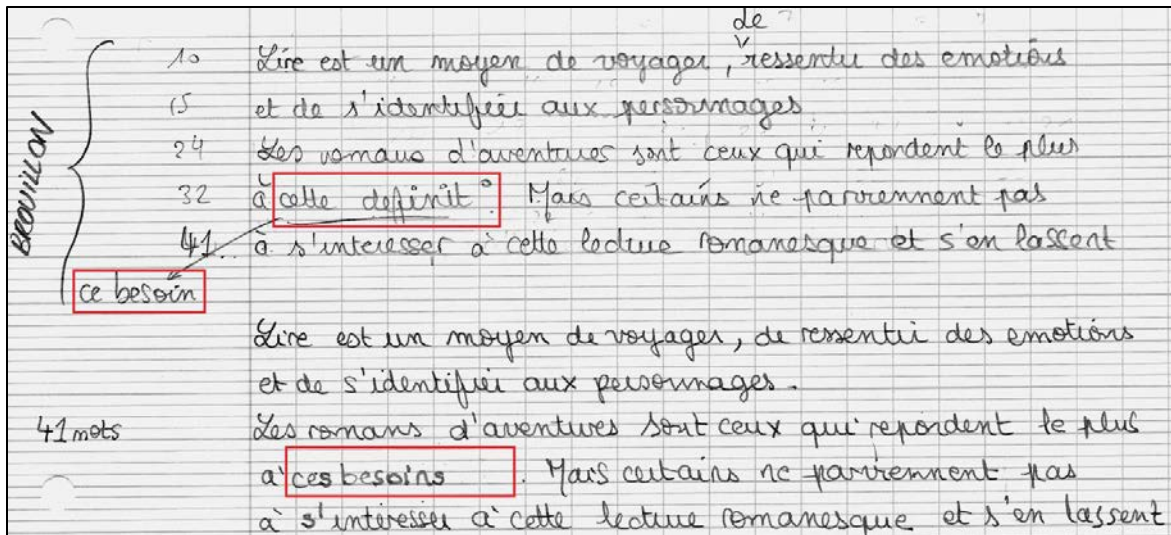 BROUILLON
de
10 Lire est un moyen de voyager, ressentir des emotions
15 et de s'identifier aux personnages.
24 Les romans d'aventures sont ceux qui repondent le plus
32 à cette definit°. Mais certains ne parviennent pas
41 à s'interesser à cette lecture romanesque et s'en lassent
ce besoin
Lire est un moyen de voyager, de ressentir des emotions
et de s'identifier aux personnages.
41 mots Les romans d'aventures sont ceux qui repondent le plus
à ces besoins. Mais certains ne parviennent pas
à s'intéresser à cette lecture romanesque et s'en lassent